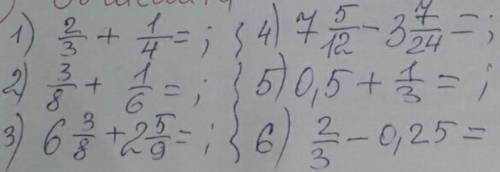 1) 2/3 + 1/4 = ; { 4) 7 5/12 - 3 7/24 = ;
2) 3/8 + 1/6 = ; { 5) 0,5 + 1/3 = ;
3) 6 3/8 + 2 5/9 = ; { 6) 2/3 - 0,25 =